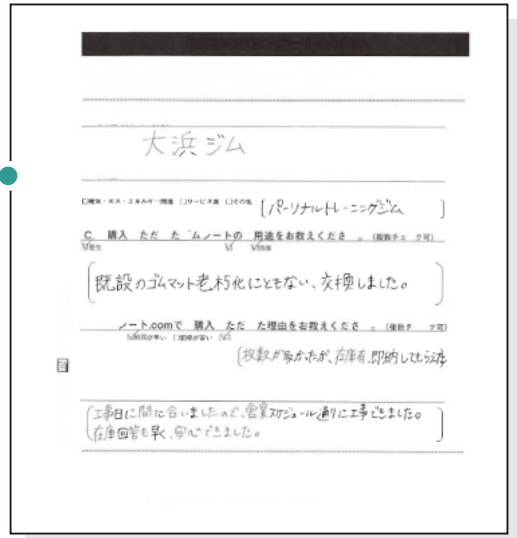 大浜ジム
□電気・ガス・エネルギー関連 □サービス業 □その他 (パーソナルトレーニングジム)
C. 購入 ただ た ゴムノートの 用途をお教えくださ 。(複数チェ ク可)
(既設のゴムマット老朽化にともない、交換しました。)
ノート.comで 購入 ただ た理由をお教えくださ 。(複数チ ク可)
□価格が安い
(枚数が多かったが、在庫有、即納してもらえる
(工事日に間に合いましたので、営業スケジュール通りに工事できました。
在庫回答も早く、安心できました。)